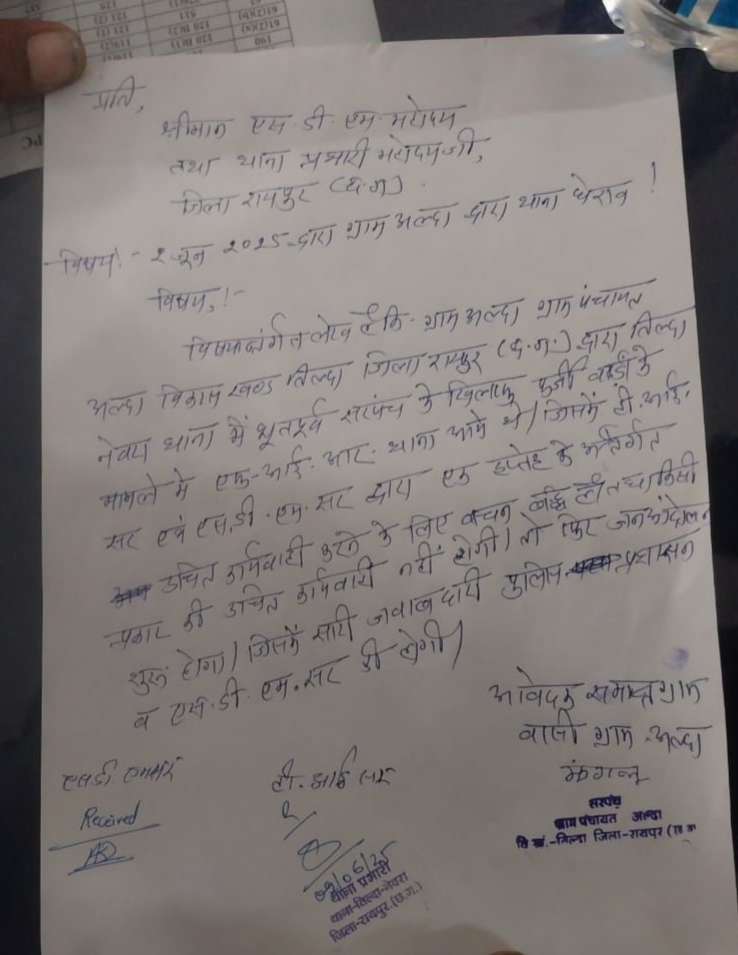 प्रति,
श्रीमान एस.डी.एम. महोदय
तथा थाना प्रभारी महोदय जी,
जिला रायपुर (छ.ग.)
विषय:- 2 जून 2025 द्वारा ग्राम अल्दा द्वारा थाना घेराव!
विषय,!-
विषयान्तर्गत लेख है कि ग्राम अल्दा ग्राम पंचायत
अल्दा विकास खण्ड तिल्दा जिला रायपुर (छ.ग.) द्वारा तिल्दा
नेवरा थाना में भूतपूर्व सरपंच के खिलाफ फर्जी के
मामले में एफ.आई.आर. थाना आये थे। जिसमें टी.आई.
सर एवं एस.डी.एम. सर द्वारा एक हप्तेह के अंतर्गत
उचित कार्यवाही करने के लिए वचन बद्ध है तथा किसी
प्रकार की उचित कार्यवाही नहीं होगी। तो फिर जनआंदोलन
शुरू होगा। जिसमें सारी जवाबदारी पुलिस प्रशासन
व एस.डी.एम. सर की होगी।
आवेदक समस्त ग्राम
वासी ग्राम अल्दा
मंगलू
सरपंच
ग्राम पंचायत अल्दा
वि.खं.-तिल्दा जिला-रायपुर (छ.ग.
टी.आई सर
Received
02/06/25
थाना प्रभारी
थाना-तिल्दा-नेवरा
जिला-रायपुर (छ.ग.)